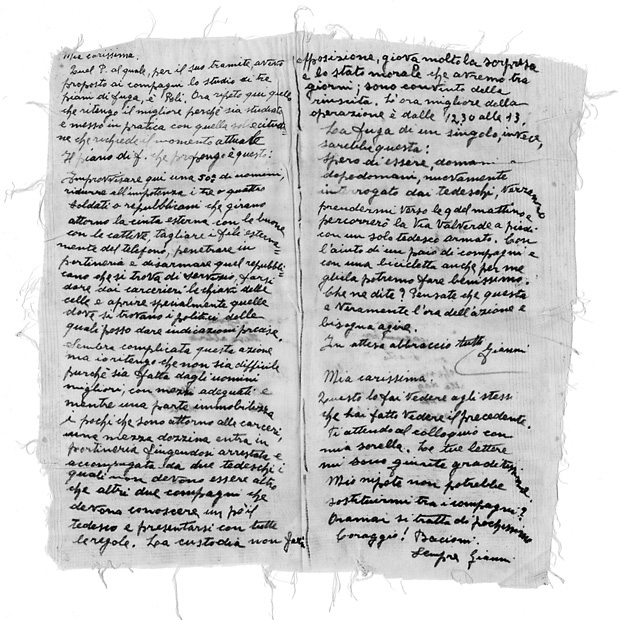 Mia carissima.
Quel P. al quale, per il suo tramite, avevo
proposto ai compagni lo studio di tre
piani di fuga, è Poli. Ora ripeto qui quello
che ritengo il migliore perchè sia studiato
e messo in pratica con quella sollecitudi
ne che richiede il momento attuale
Il piano di f. che propongo è questo:
Improvvisare qui una 50ª di uomini,
ridurre all'impotenza i tre o quattro
soldati o repubblicani che girano
attorno la cinta esterna con le buone o
con le cattive, tagliare i fili esterna=
mente del telefono, penetrare in
portineria e disarmare quel repubbli=
cano che si trova di servizio, farsi
dare dai carcerieri le chiavi delle
celle e aprire specialmente quelle
dove si trovano i politici delle
quali posso dare indicazioni precise.
Sembra complicata questa azione
ma io ritengo che non sia difficile
purchè sia fatta dagli uomini
migliori, con mezzi adeguati e
mentre una parte immobilizza
i pochi che sono attorno alle carceri,
una mezza dozzina entra in
portineria fingendosi arrestata e
accompagnata da due tedeschi i
quali non devono essere altro
che altri due compagni che
devono conoscere un po' il
tedesco e presentarsi con tutte
le regole. La custodia non farà
opposizione, giova molto la sorpresa
e lo stato morale che avremo tra
giorni; sono convinto della
riuscita. L'ora migliore della
operazione è dalle 12,30 alle 13.
La fuga di un singolo, invece,
sarebbe questa:
Spero di essere, domani o
dopodomani, nuovamente
interrogato dai tedeschi, verranno
prendermi verso le 9 del mattino e
percorrerò la Via Valverde a piedi
con un solo tedesco armato. Con
l'aiuto di un paio di compagni e
con una bicicletta anche per me
gliela potremo fare benissimo.
Che ne dite? Pensate che questa
è veramente l'ora dell'azione e
bisogna agire.
In attesa abbraccio tutti
Gianni
Mia carissima:
Questo lo fai vedere agli stessi
che hai fatto vedere il precedente.
Ti attendo al colloquio con
mia sorella. Le tue lettere
mi sono giunte graditissime.
Mio nipote non potrebbe
sostituirmi tra i compagni?
Oramai si tratta di pochissimo
Coraggio! Bacioni.
Sempre Gianni